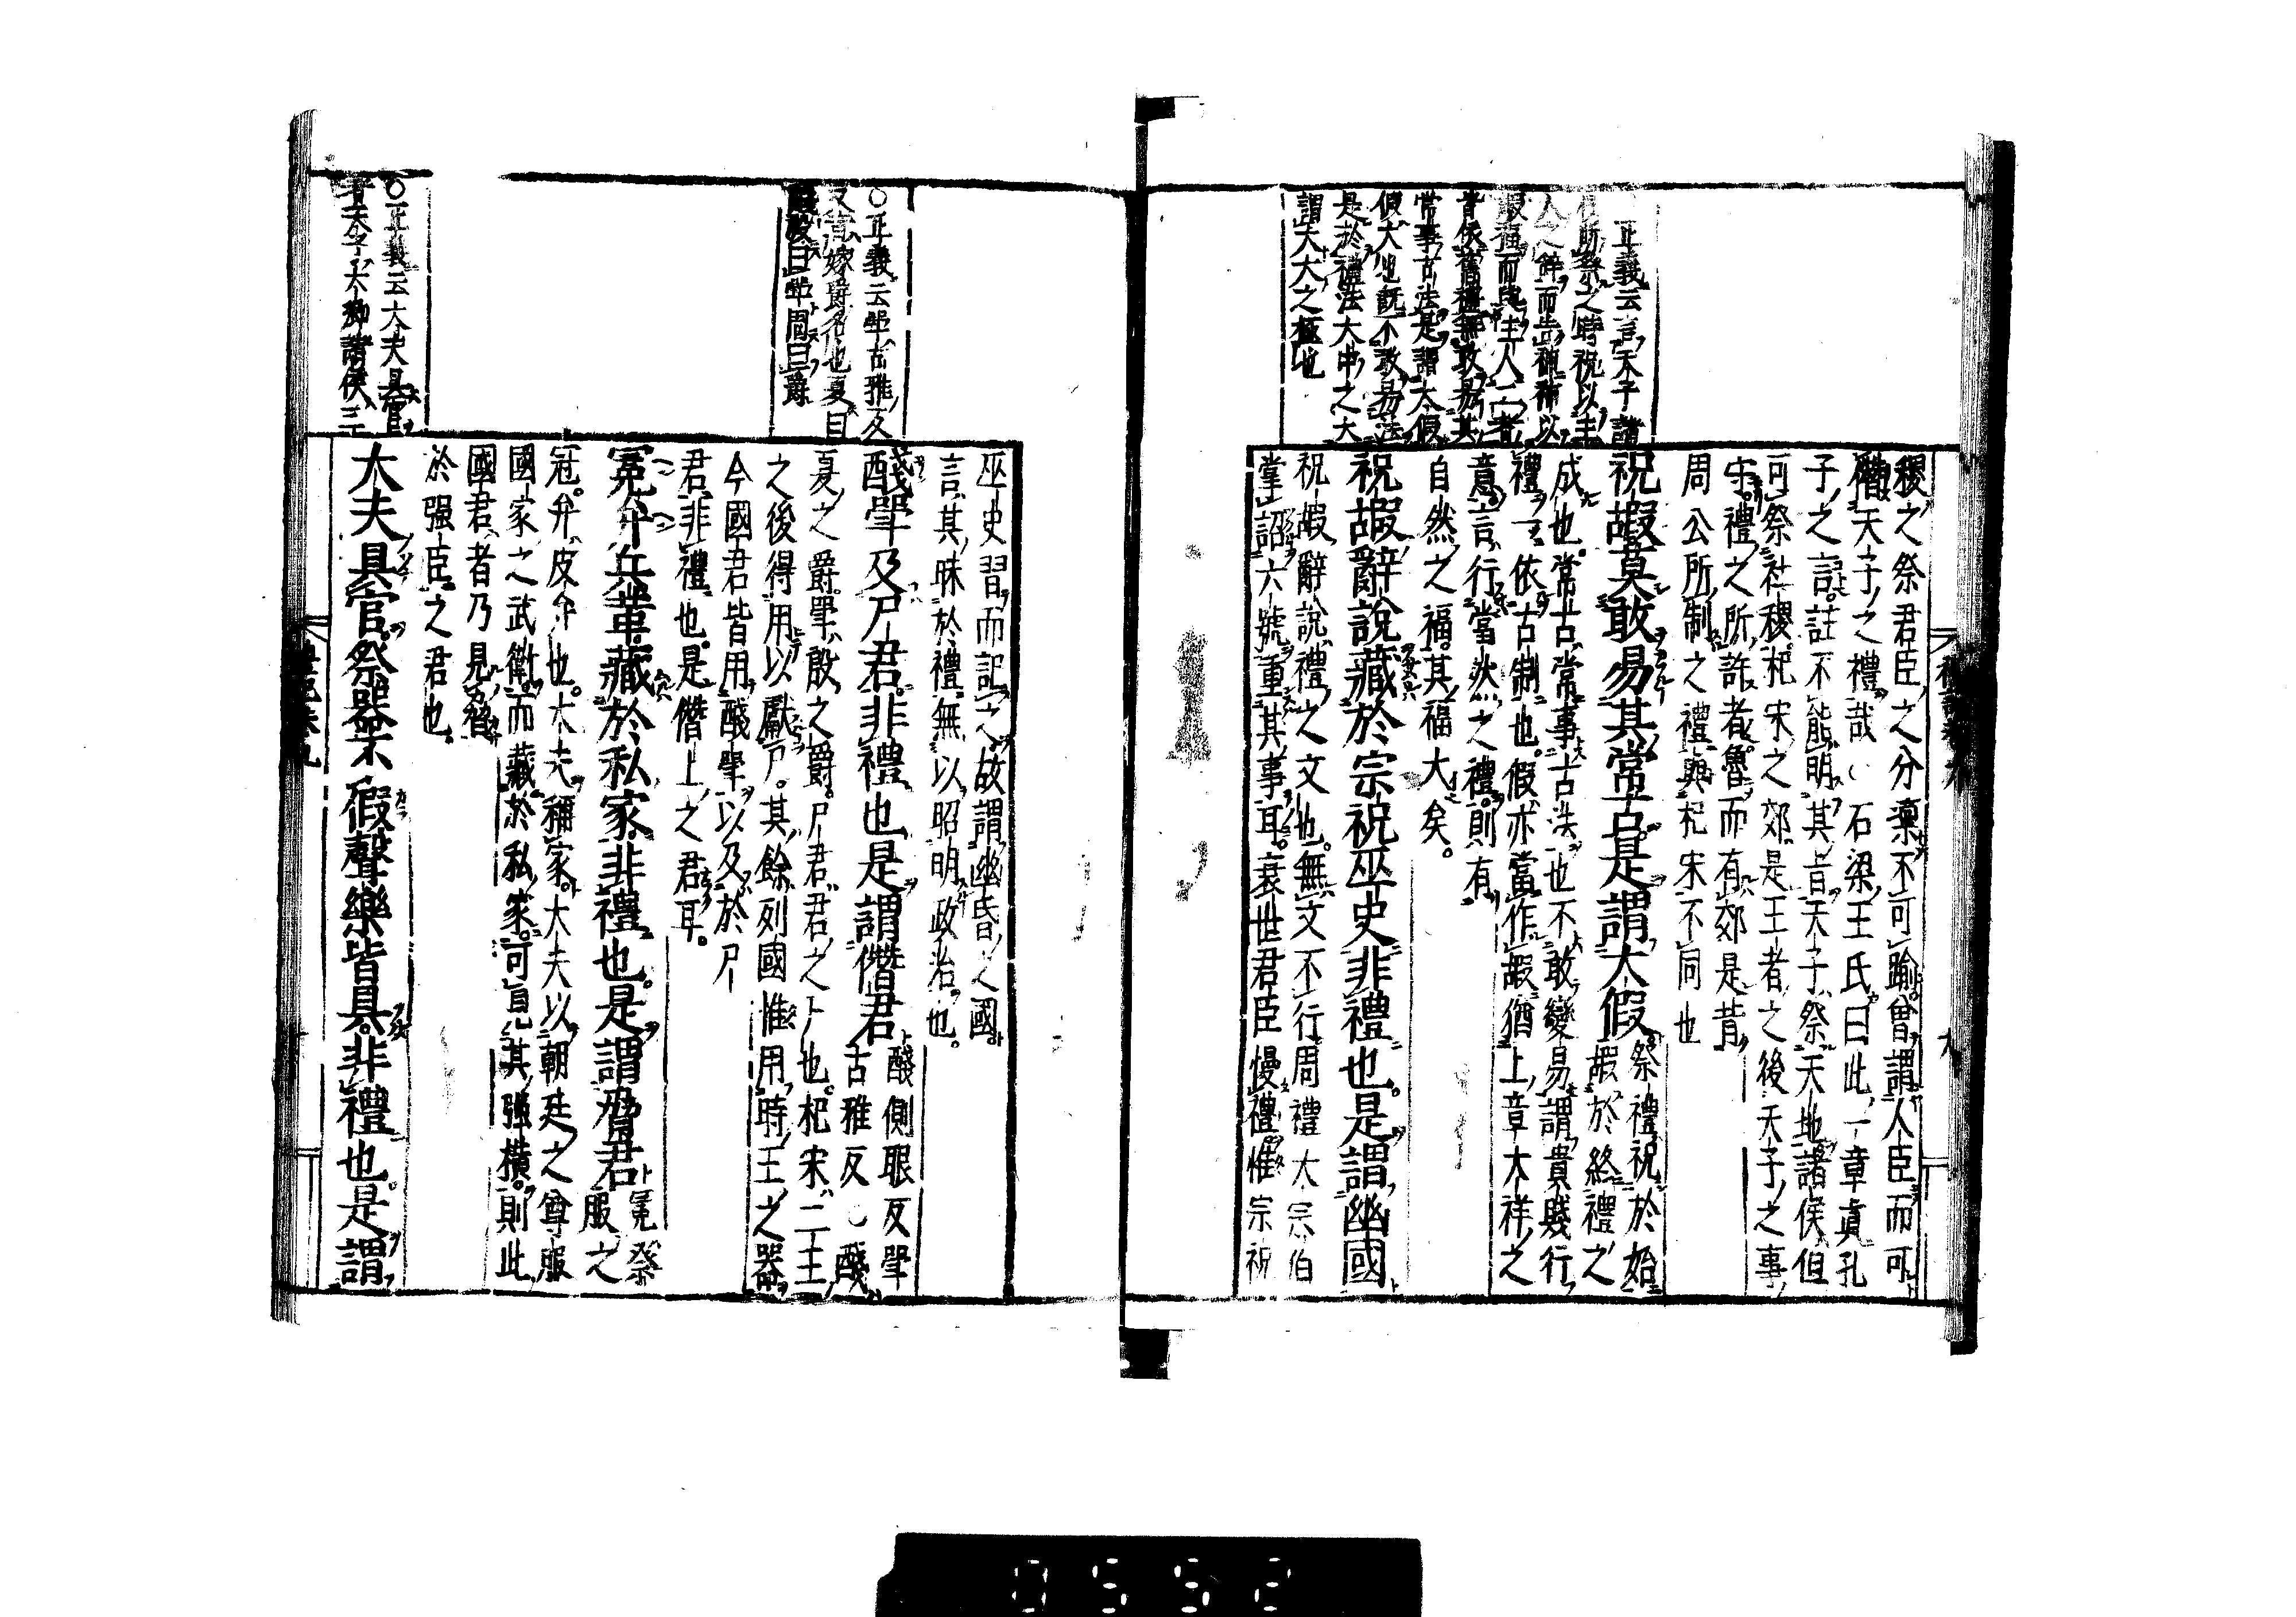 稷之祭君臣之分凛不可踰曾謂人臣而可
僭天子之禮哉○石梁王氏曰此一章真孔
子之言註不能明其旨天子祭天地諸侯但
可祭社稷杞宋之郊是王者之後天子之事
守禮之所許者魯而有郊是昔
周公所制之禮與杞宋不同也
祝嘏莫敢易其常古是謂大假
祭禮祝於始
嘏於終禮之
成也常古常事古法也不敢變易謂貴賤行
禮一依古制也假亦當作嘏猶上章大祥之
意言行當然之禮則有
自然之福其福大矣
祝嘏辭說藏於宗祝巫史非禮也是謂幽國
祝嘏辭說禮之文也無文不行周禮大宗伯
掌詔六號重其事耳衰世君臣慢禮惟宗祝
正義云言天子諸
所祭之時祝以主
人之辭而告神神以
嘏福而與主人二者
皆依舊禮無敢易其
常事古法是謂大假
假大也既不敢易法
是於禮法大中之大
謂大大之極也
巫史習而記之故謂幽昏之國
言其昧於禮無以昭明政治也
醆斝及尸君非禮也是謂僭君
醆側眼反斝
古雅反○醆
夏之爵斝殷之爵尸君君之尸也杞宋二王
之後得用以獻尸其餘列國惟用時王之器
今國君皆用醆斝以及於尸
君非禮也是僭上之君耳
冕弁兵革藏於私家非禮也是謂脅君
冕祭
服之
冠弁皮弁也大夫稱家大夫以朝廷之尊服
國家之武衛而藏於私家可見其强橫則此
國君者乃見脅
於强臣之君也
大夫具官祭器不假聲樂皆具非禮也是謂
○正義云斝古雅反
又音嫁爵名也夏曰
醆殷曰斝周曰爵
○正義云大夫具官
者天子六卿諸侯三